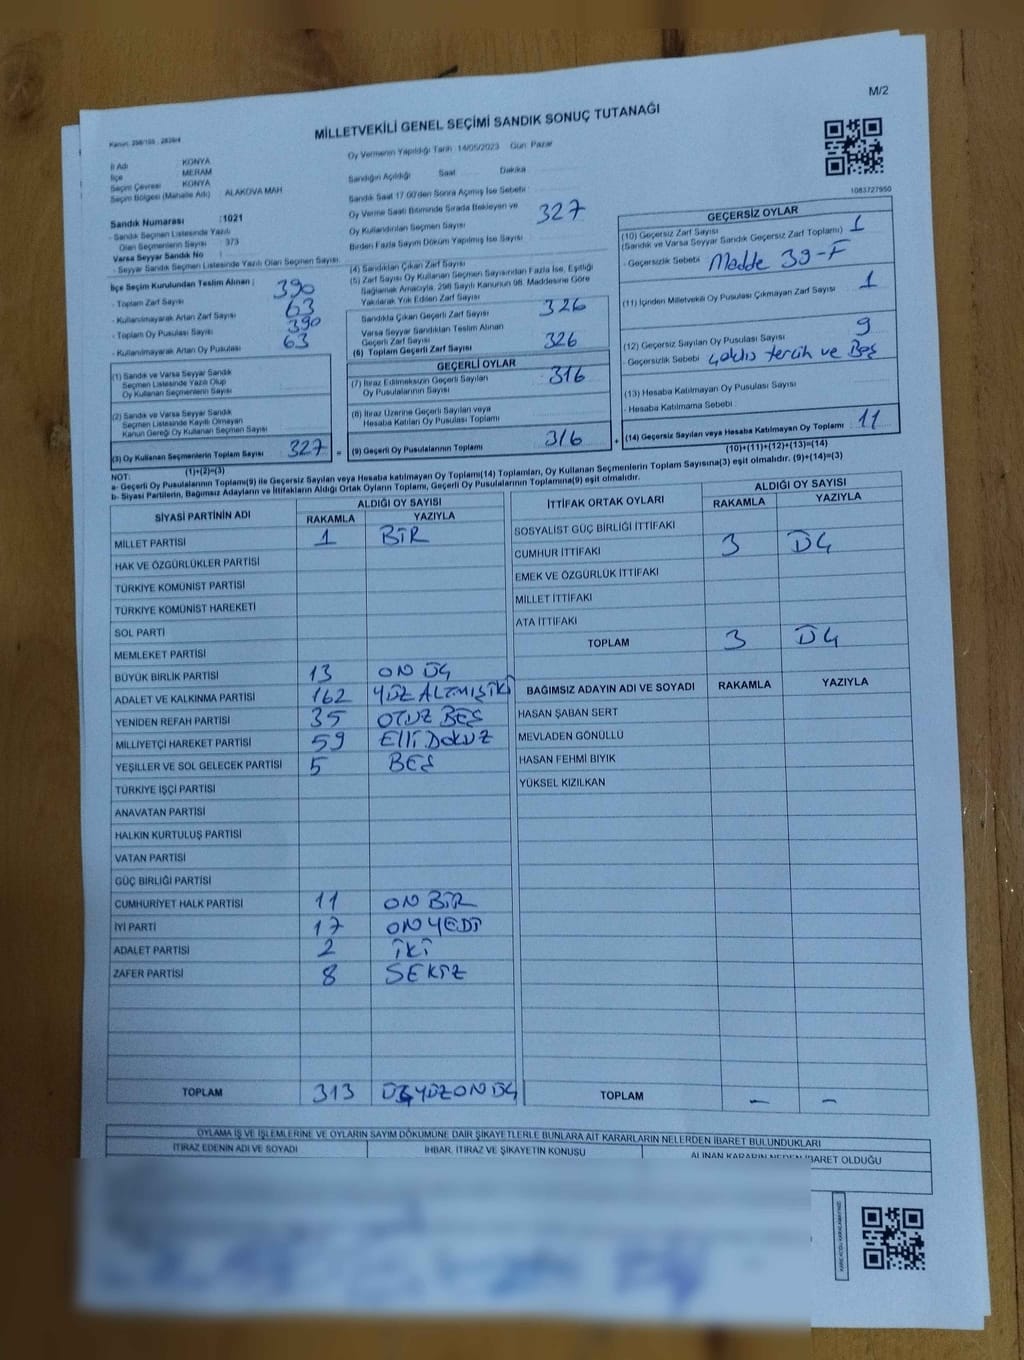 M/2
MİLLETVEKİLİ GENEL SEÇİMİ SANDIK SONUÇ TUTANAĞI
İl Adı : KONYA
İlçe : MERAM
Seçim Çevresi : KONYA
Seçim Bölgesi (Mahalle Adı) : ALAKOVA MAH
Sandık Numarası : 1021
- Sandık Seçmen Listesinde Yazılı
Olan Seçmenlerin Sayısı : 373
Varsa Seyyar Sandık No :
- Seyyar Sandık Seçmen Listesinde Yazılı Olan Seçmen Sayısı :
İlçe Seçim Kurulundan Teslim Alınan ;
- Toplam Zarf Sayısı 390
- Kullanılmayarak Artan Zarf Sayısı 63
- Toplam Oy Pusulası Sayısı 390
- Kullanılmayarak Artan Oy Pusulası 63
(1) Sandık ve Varsa Seyyar Sandık
Seçmen Listesinde Yazılı Olup
Oy Kullanan Seçmenlerin Sayısı
(2) Sandık ve Varsa Seyyar Sandık
Seçmen Listesinde Kayıtlı Olmayan
Kanun Gereği Oy Kullanan Seçmen Sayısı
(3) Oy Kullanan Seçmenlerin Toplam Sayısı 327 =
(1)+(2)=(3)
Oy Vermenin Yapıldığı Tarih :14/05/2023 Gün: Pazar
Sandığın Açıldığı Saat Dakika
Sandık Saat 17:00'den Sonra Açılmış İse Sebebi :
Oy Verme Saati Bitiminde Sırada Bekleyen ve
Oy Kullandırılan Seçmen Sayısı
Birden Fazla Sayım Döküm Yapılmış İse Sayısı :
(4) Sandıktan Çıkan Zarf Sayısı 327
(5) Zarf Sayısı Oy Kullanan Seçmen Sayısından Fazla İse, Eşitliği
Sağlamak Amacıyla, 298 Sayılı Kanunun 98. Maddesine Göre
Yakılarak Yok Edilen Zarf Sayısı
Sandıkta Çıkan Geçerli Zarf Sayısı 326
Varsa Seyyar Sandıktan Teslim Alınan
Geçerli Zarf Sayısı
(6) Toplam Geçerli Zarf Sayısı 326
GEÇERLİ OYLAR
(7) İtiraz Edilmeksizin Geçerli Sayılan
Oy Pusulalarının Sayısı 316
(8) İtiraz Üzerine Geçerli Sayılan veya
Hesaba Katılan Oy Pusulası Toplamı
(9) Geçerli Oy Pusulalarının Toplamı 316 +
1083727950
GEÇERSİZ OYLAR
(10) Geçersiz Zarf Sayısı 1
(Sandık ve Varsa Seyyar Sandık Geçersiz Zarf Toplamı)
- Geçersizlik Sebebi : Madde 39-F
(11) İçinden Milletvekili Oy Pusulası Çıkmayan Zarf Sayısı 1
(12) Geçersiz Sayılan Oy Pusulası Sayısı 9
- Geçersizlik Sebebi tercih ve Boş
(13) Hesaba Katılmayan Oy Pusulası Sayısı
- Hesaba Katılmama Sebebi :
(14) Geçersiz Sayılan veya Hesaba Katılmayan Oy Toplamı 11
(10)+(11)+(12)+(13)=(14)
NOT:
a- Geçerli Oy Pusulalarının Toplamı(9) ile Geçersiz Sayılan veya Hesaba katılmayan Oy Toplamı(14) Toplamları, Oy Kullanan Seçmenlerin Toplam Sayısına(3) eşit olmalıdır. (9)+(14)=(3)
b- Siyasi Partilerin, Bağımsız Adayların ve İttifakların Aldığı Ortak Oyların Toplamı, Geçerli Oy Pusulalarının Toplamına(9) eşit olmalıdır.
SİYASİ PARTİNİN ADI ALDIĞI OY SAYISI
RAKAMLA YAZIYLA
MİLLET PARTİSİ 1 BİR
HAK VE ÖZGÜRLÜKLER PARTİSİ
TÜRKİYE KOMÜNİST PARTİSİ
TÜRKİYE KOMÜNİST HAREKETİ
SOL PARTİ
MEMLEKET PARTİSİ
BÜYÜK BİRLİK PARTİSİ 13 ON ÜÇ
ADALET VE KALKINMA PARTİSİ 162 YÜZ ALTMIŞ İKİ
YENİDEN REFAH PARTİSİ 35 OTUZ BEŞ
MİLLİYETÇİ HAREKET PARTİSİ 59 Elli DOKUZ
YEŞİLLER VE SOL GELECEK PARTİSİ 5 BEŞ
TÜRKİYE İŞÇİ PARTİSİ
ANAVATAN PARTİSİ
HALKIN KURTULUŞ PARTİSİ
VATAN PARTİSİ
GÜÇ BİRLİĞİ PARTİSİ
CUMHURİYET HALK PARTİSİ 11 ON BİR
İYİ PARTİ 17 ON YEDİ
ADALET PARTİSİ 2 İKİ
ZAFER PARTİSİ 8 SEKİZ
TOPLAM 313 ÜÇYÜZ ON ÜÇ
İTTİFAK ORTAK OYLARI ALDIĞI OY SAYISI
RAKAMLA YAZIYLA
SOSYALİST GÜÇ BİRLİĞİ İTTİFAKI
CUMHUR İTTİFAKI 3 ÜÇ
EMEK VE ÖZGÜRLÜK İTTİFAKI
MİLLET İTTİFAKI
ATA İTTİFAKI
TOPLAM 3 ÜÇ
BAĞIMSIZ ADAYIN ADI VE SOYADI RAKAMLA YAZIYLA
HASAN ŞABAN SERT
MEVLADEN GÖNÜLLÜ
HASAN FEHMİ BIYIK
YÜKSEL KIZILKAN
TOPLAM – –
OYLAMA İŞ VE İŞLEMLERİNE VE OYLARIN SAYIM DÖKÜMÜNE DAİR ŞİKAYETLERLE BUNLARA AİT KARARLARIN NELERDEN İBARET BULUNDUKLARI
İTİRAZ EDENİN ADI VE SOYADI İHBAR, İTİRAZ VE ŞİKAYETİN KONUSU ALINAN KARARIN NEDEN İBARET OLDUĞU